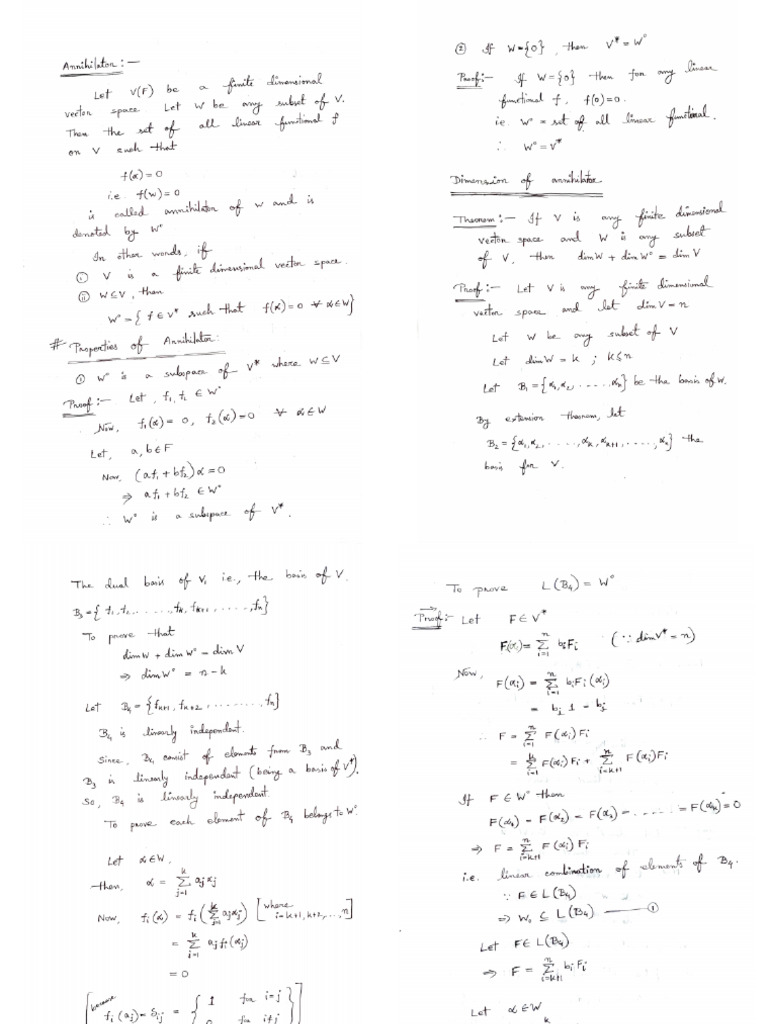 Annihilator :—
Let V(F) be a finite dimensional
vector space. Let W be any subset of V.
Then the set of all linear functional f
on V such that
f(α) = 0
i.e. f(w) = 0
is called annihilator of W and is
denoted by W°
In other words, if
(i) V is a finite dimensional vector space.
(ii) W⊆V, then
W° = { f ∈ V* such that f(α) = 0 ∀ α∈W}
# Properties of Annihilator:
① W° is a subspace of V* where W ⊆ V
Proof :— Let, f₁, f₂ ∈ W°
Now, f₁(α) = 0, f₂(α) = 0 ∀ α∈W
Let, a, b ∈ F
Now, (af₁ + bf₂) α = 0
⇒ af₁ + bf₂ ∈ W°
∴ W° is a subspace of V*.
② If W = {0}, then V* = W°
Proof :— If W = {0} then for any linear
functional f, f(0) = 0.
i.e. W° = set of all linear functional.
∴ W° = V*
Dimension of annihilator
Theorem :— If V is any finite dimensional
vector space and W is any subset
of V, then dim W + dim W° = dim V
Proof :— Let V is any finite dimensional
vector space and let dim V = n
Let W be any subset of V
Let dim W = k ; k ≤ n
Let B₁ = {α₁, α₂ , ......, αₖ} be the basis of W.
By extension theorem, let
B₂ = {α₁, α₂, ....., αₖ, αₖ₊₁, ....., αₙ} the
basis for V.
The dual basis of V, i.e., the basis of V.
B₃ = { f₁, f₂, ......, fₖ, fₖ₊₁, ....., fₙ}
To prove that
dim W + dim W° = dim V
⇒ dim W° = n - k
Let B₄ = {fₖ₊₁, fₖ₊₂, ........, fₙ}
B₄ is linearly independent.
Since, B₄ consist of elements from B₃ and
B₃ is linearly independent (being a basis of V*),
So, B₄ is linearly independent.
To prove each element of B₄ belongs to W°
Let α∈W,
then, α = Σ_{j=1}^{k} aⱼαⱼ
Now, fᵢ(α) = fᵢ(Σ_{j=1}^{k} aⱼαⱼ) [where i = k+1, k+2, ..., n]
= Σ_{j=1}^{k} aⱼfᵢ(αⱼ)
= 0
[because fᵢ(αⱼ) = δᵢⱼ = { 1 for i=j
0 for i≠j }]
To prove L(B₄) = W°
Proof :- Let F ∈ V*
F(αᵢ) = Σ_{i=1}^{n} bᵢFᵢ (∵ dim V* = n)
Now, F(αⱼ) = Σ_{i=1}^{n} bᵢFᵢ(αⱼ)
= bⱼ 1 = bⱼ
∴ F = Σ_{i=1}^{n} F(αᵢ)Fᵢ
= Σ_{i=1}^{k} F(αᵢ)Fᵢ + Σ_{i=k+1}^{n} F(αᵢ)Fᵢ
If F ∈ W° then
F(α₁) = F(α₂) = F(α₃) = ...... = F(αₖ) = 0
⇒ F = Σ_{i=k+1}^{n} F(αᵢ)Fᵢ
i.e. linear combination of elements of B₄.
∵ F ∈ L(B₄)
⇒ W₀ ⊆ L(B₄) —— ①
Let F ∈ L(B₄)
⇒ F = Σ_{i=k+1}^{n} bᵢFᵢ
Let α∈W
k